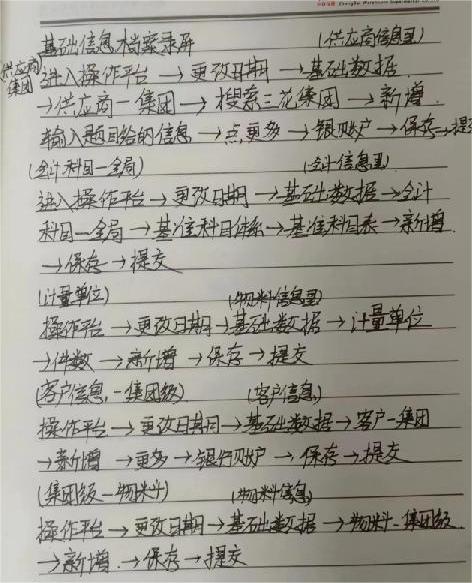 基础信息档案录屏 (供应商信息里)
供应商集团
进入操作平台 → 更改日期 → 基础数据
→供应商一集团 → 搜索三花集团 → 新增
输入题目给的信息 → 点更多 → 银行账户 → 保存→提交
(会计科目一全局) (会计信息里)
进入操作平台 → 更改日期 → 基础数据 → 会计
科目一全局 → 基准科目体系 → 基准科目表 → 新增
→保存 → 提交
(计量单位) (物料信息里)
操作平台 → 更改日期 → 基础数据 → 计量单位
→件数 → 新增 → 保存 → 提交
(客户信息,一集团级) (客户信息)
操作平台 → 更改日期 → 基础数据 → 客户一集团
→新增 → 更多 → 银行账户 → 保存 → 提交
(集团级一物料) (物料信息)
操作平台 → 更改日期 → 基础数据 → 物料一集团级
→新增 → 保存 → 提交